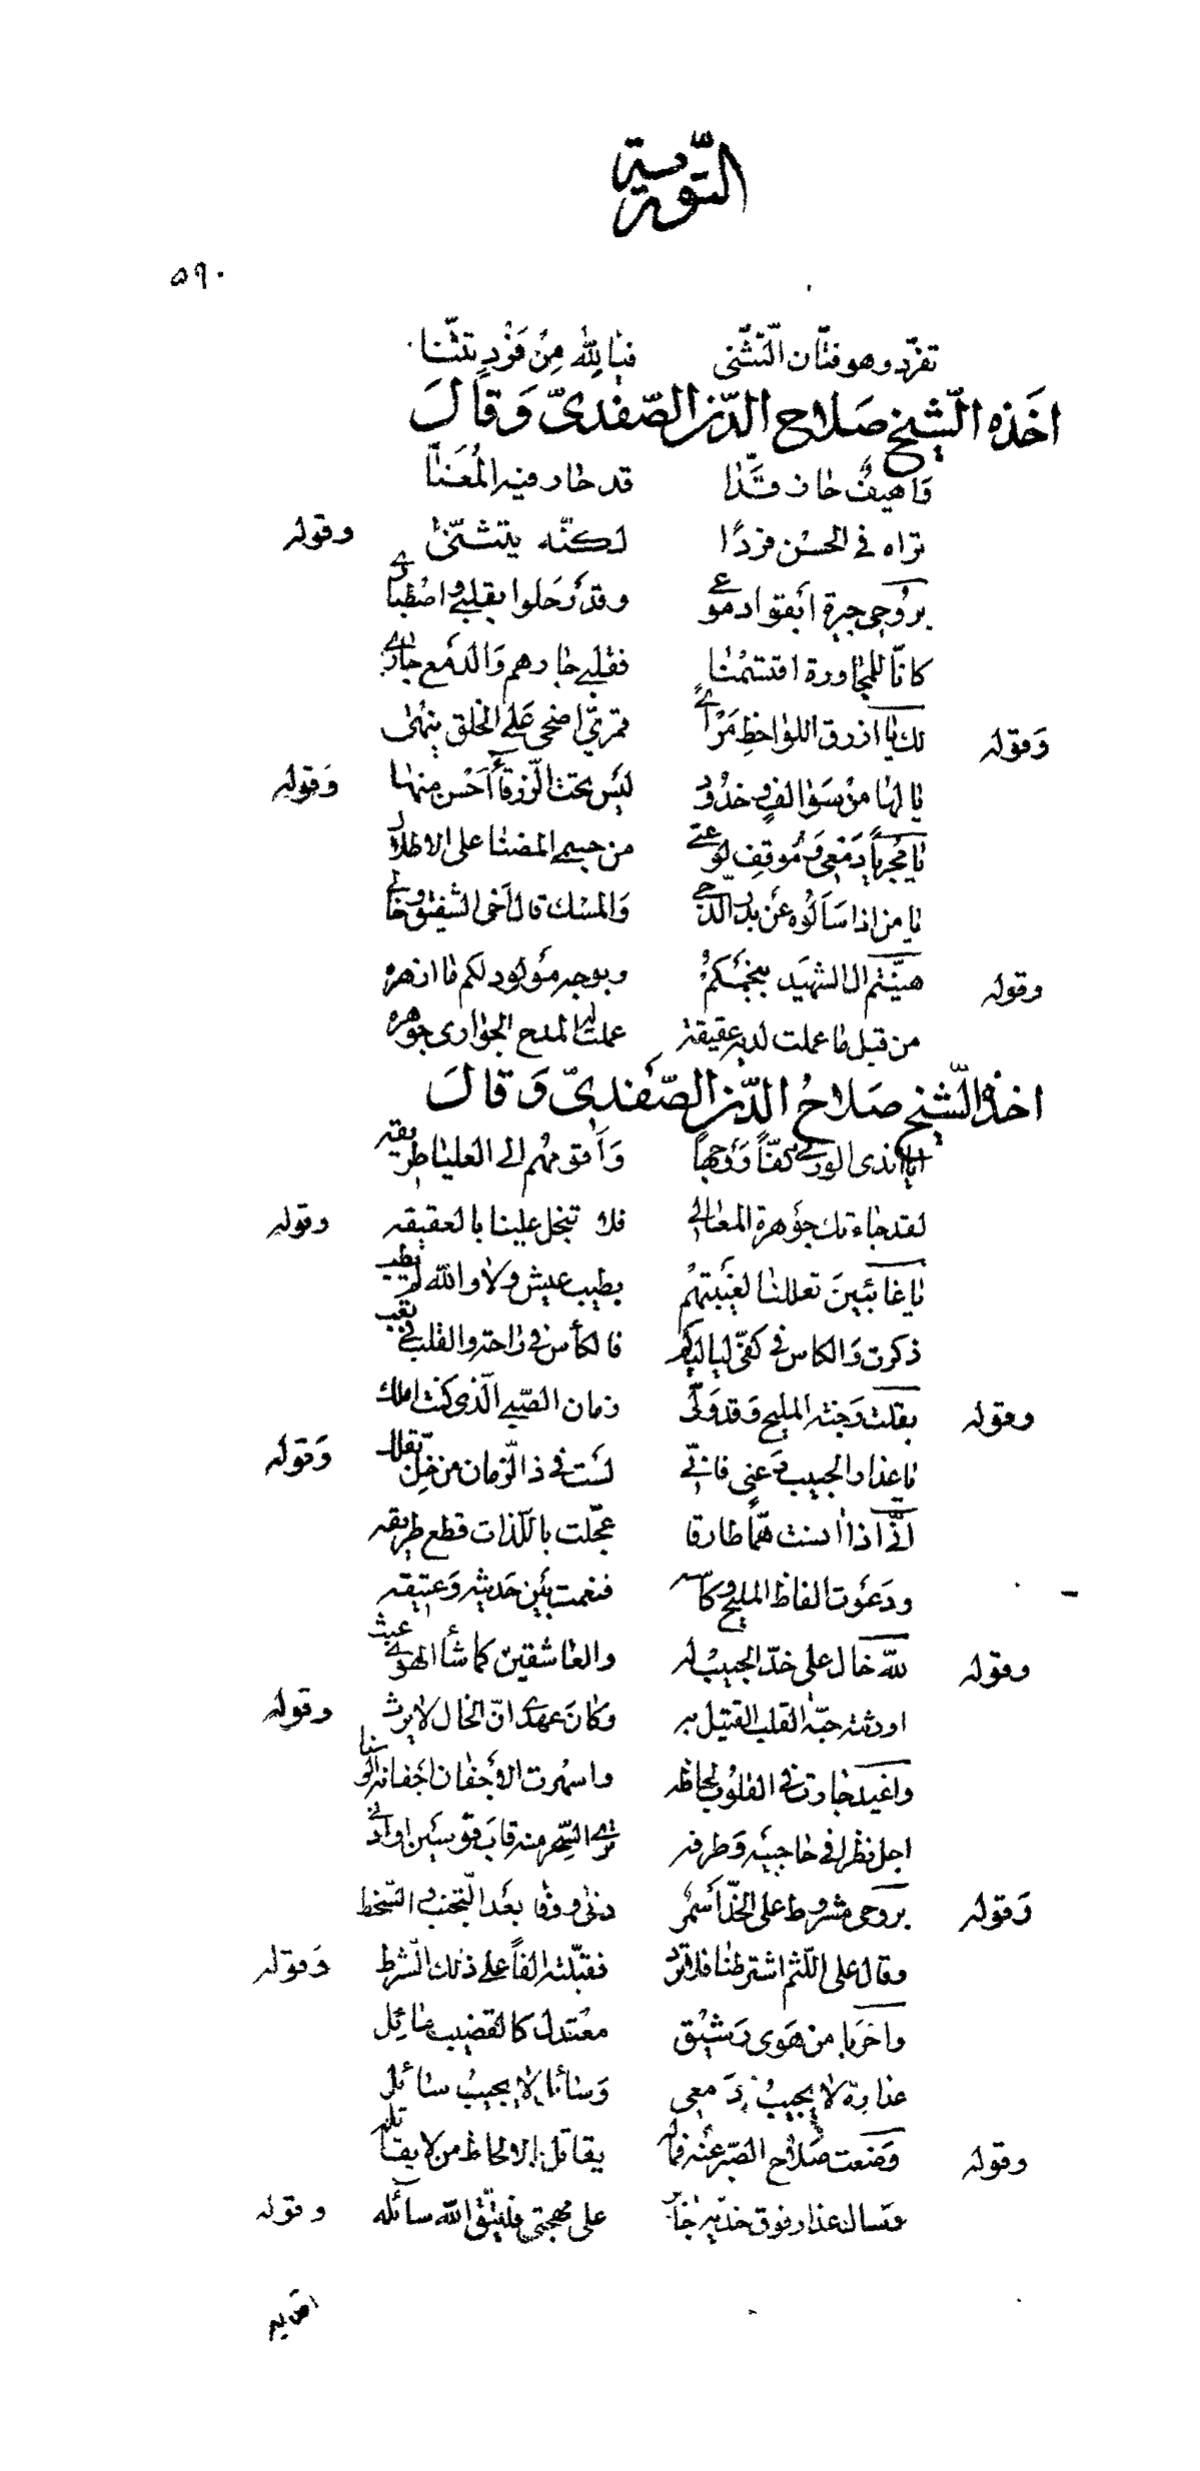 التّورية
٥٩٠
تفرّد وهو فتّان التّثنّى فيا لله من فرد تثنّا
اخذه الشّيخ صلاح الدّين الصّفدىّ وقال
واهيف حاز قدّا قد حار فيه المُعنّا
تراه فى الحسن فردًا لكنّه يتثنّى وقوله
بروحى جيرة ابقوا دموعى وقد رحلوا بقلبى واصطبارى
كانّا للمجاورة اقتسمنا فقلبى جارهم والدمع جارى
وقوله لك يا ازرق اللواحظ مرأى قمرىّ اضحى على الخلق ينهى
يا لها من سوالف وخدود ليس تحت الزّرقاء احسن منها وقوله
يا مجريا دمعى وموقف لوعتى من جسمى المضنا على الاطلال
يا من اذا سألوه عن بدر الدّجى والمسك قال اخى الشقيق وخالى
وقوله هنّيتم ال الشهيد بنجمكم وبوجه مولود لكم ما ازهره
من قبل ما عملت لديه عقيقة عملت له المدح الجوارى جوهره
اخذه الشّيخ صلاح الدّين الصّفدىّ وقال
ايا اندى الورى كفّاً ووجهاً واقومهم الى العليا طريقه
لقد جاءتك جوهرة المعالى فلا تبخل علينا بالعقيقه وقوله
يا غائبين تعللنا لغيبتهم بطيب عيش ولا والله لم يطب
ذكرت والكاس فى كفّى لياليكم فالكأس فى راحة والقلب فى تعب
وقوله بقلت وجنة المليح وقد ولّى زمان الصّبى الّذى كنت املك
يا عذار الحبيب دعنى فانّى لست فى ذا الزّمان من خلّ بقلك وقوله
انّى اذا انست همّا طارقا عجّلت باللّذات قطع طريقه
ودعوت الفاظ المليح وكاسه فنعمت بين حديثه وعتيقه
وقوله للّه خال على خدّ الحبيب له والعاشقين كما شأ الهوى عبث
اورثته حبّة القلب القتيل به وكان عهدى انّ الخال لا يرث وقوله
واغيد جارت فى القلوب لحاظه واسهرت الاجفان اجفانه الوسنا
اجل نظرا فى حاجبيه وطرفه ترى السّحر منه قاب قوسين او ادنى
وقوله بروحى مشروط على الخدّ اسمر دنى ووفا بعد التّجنب والسّخط
وقال على اللّثم اشترطنا فلا تزد فقبّلته الفاً على ذلك الشّرط وقوله
واحربا من هوى رشيق معتدل كالقضيب مائل
عذاره لا يجيب دمعى وسائلا لا يجيب سائل
وقوله وضعت سلاح الصّبر عنه فما له يقاتل بالالحاظ من لا يقاتله
وسال عذار فوق خدّيه جائر على مهجتى فليتّق الله سائله وقوله